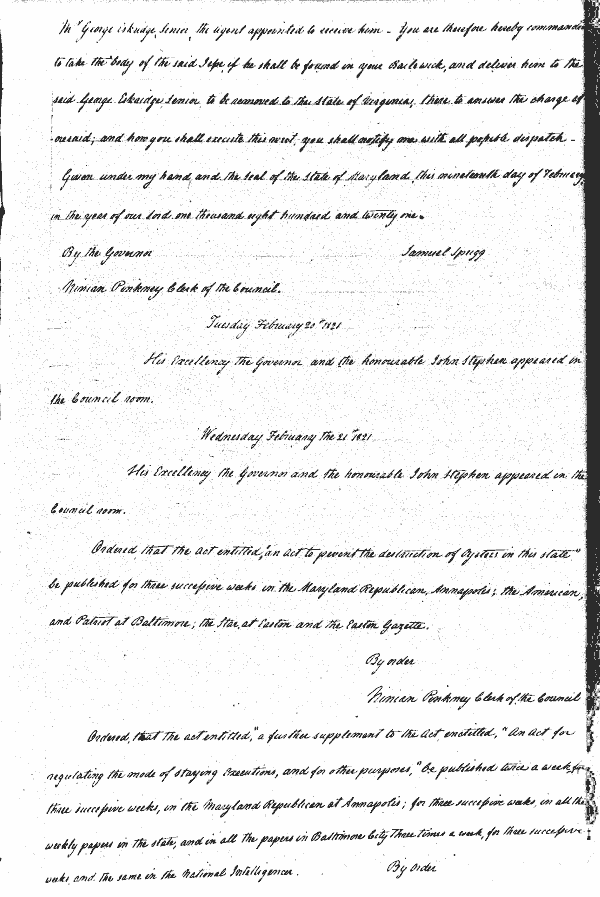 Mr George Eskridge Senior, the agent appointed to receive him - You are therefore hereby commanded
to take the body of the said Jesse, if he shall be found in your Bailewick, and deliver him to the
said George Eskridge Senior to be removed to the State of Virginia, there to answer the charge of
oresaid; and how you shall execute this writ, you shall notify me with all possible dispatch -
Given under my hand and the seal of the State of Maryland, this nineteenth day of February
in the year of our Lord one thousand eight hundred and twenty one.
By the Governor Samuel Sprigg
Ninian Pinkney Clerk of the Council.
Tuesday February 20th 1821
His Excellency the Governor and the honourable John Stephen appeared in
the Council room.
Wednesday February the 21st 1821
His Excellency the Governor and the honourable John Stephen appeared in the
Council room.
Ordered that the Act entitled, "an act to prevent the destruction of Oysters in this state"
be published for three successive weeks in the Maryland Republican, Annapolis; the American,
and Patriot at Baltimore; the Star, at Easton and the Easton Gazette.
By order
Ninian Pinkney Clerk of the Council
Ordered, that the act entitled, "a further supplement to the Act, enctitled, "An Act for
regulating the mode of staying Executions, and for other purposes," be published twice a week, for
three successive weeks, in the Maryland Republican at Annapolis; for three successive weeks, in all the
weekly papers in the state, and in all the papers in Baltimore City Three times a week, for three successive
weeks, and the same in the National Intelligencer. By order